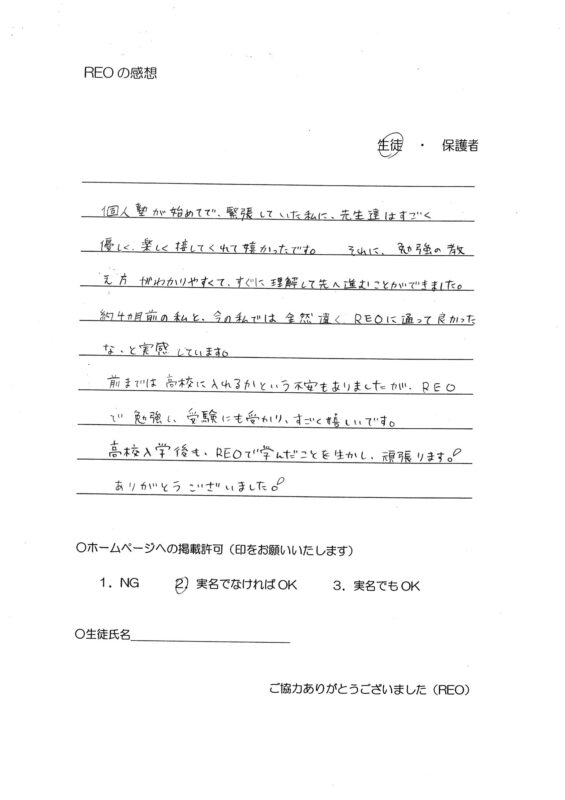 REOの感想
生徒 ・ 保護者
個人塾が始めてで、緊張していた私に、先生達はすごく
優しく、楽しく接してくれて嬉かったです。 それに、勉強の教
え方がわかりやすくて、すぐに理解して先へ進むことができました。
約4カ月前の私と、今の私では全然違く、REOに通って良かった
な、と実感しています。
前までは高校に入れるかという不安もありましたが、REO
で勉強し、受験にも受かり、すごく嬉しいです。
高校入学後も、REOで学んだことを生かし、頑張ります。
ありがとうございました。
〇ホームページへの掲載許可（印をお願いいたします）
1．NG 2．実名でなければOK 3．実名でもOK
〇生徒氏名
ご協力ありがとうございました（REO）